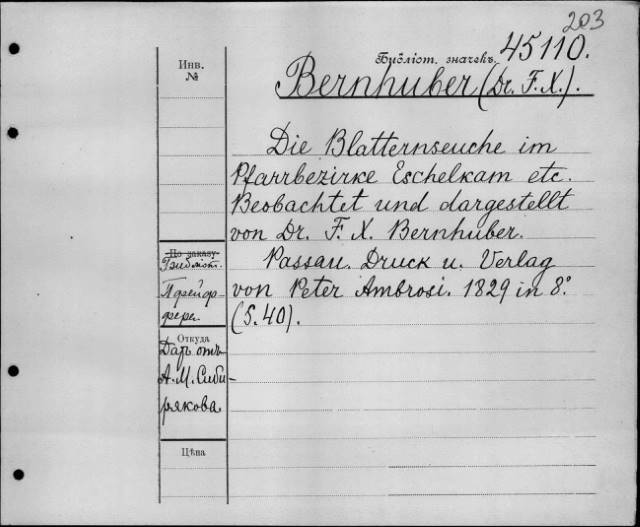 203
Библіот. значекъ 45110.
Инв.
№
Bernhuber (Dr. F. X.).
Die Blatternseuche im
Pfarrbezirke Eschelkam etc.
Beobachtet und dargestellt
von Dr. F. X. Bernhuber.
По заказу
Passau. Druck u. Verlag
von Peter Ambrosi. 1829 in 8°.
(S. 40).
Откуда
Даръ отъ
А. М. Сиби-
рякова
Цѣна